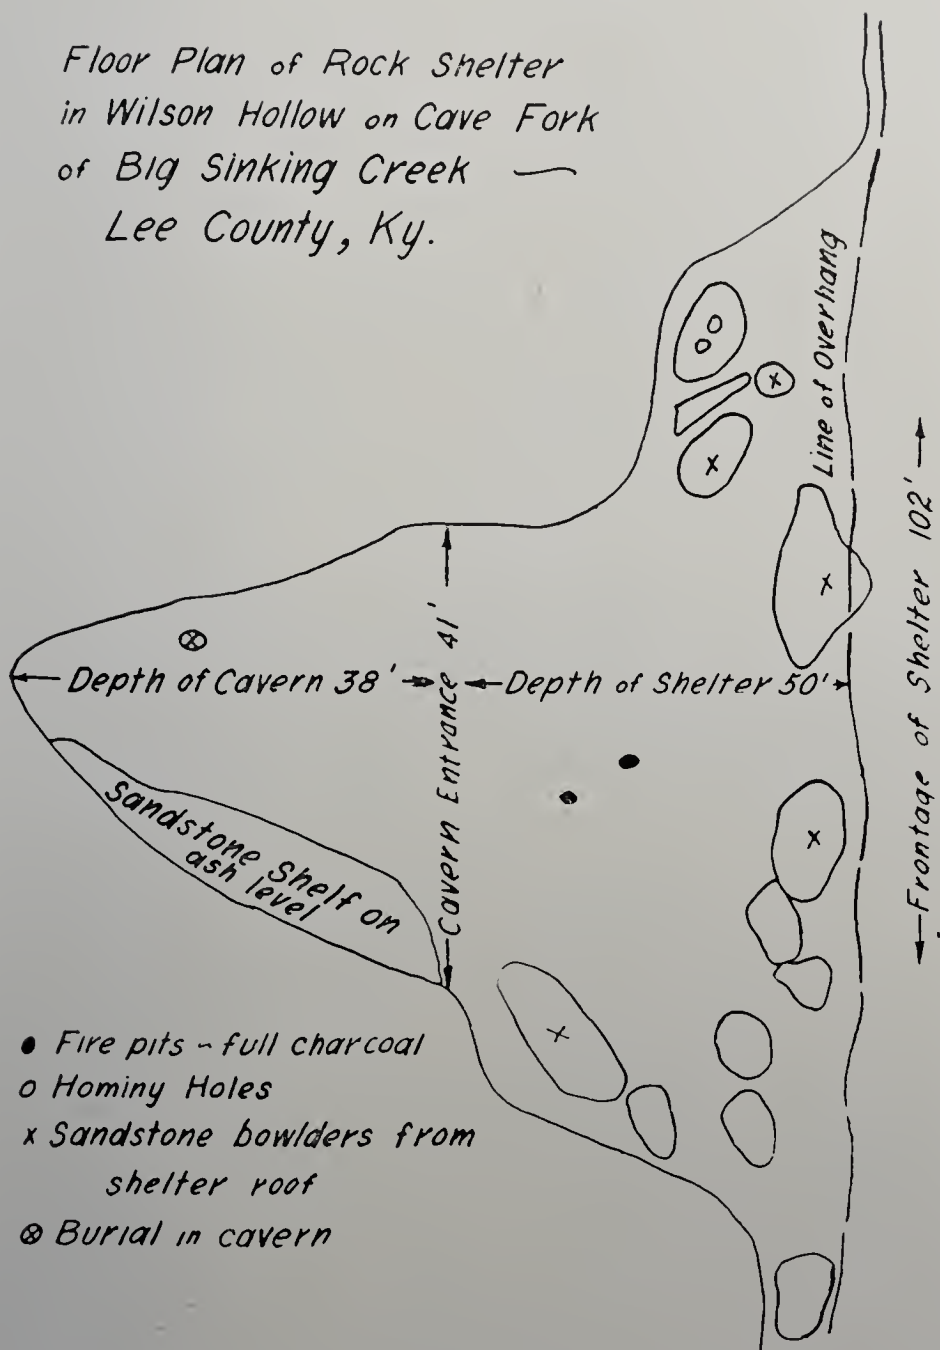 Floor Plan of Rock Shelter
in Wilson Hollow on Cave Fork
of Big Sinking Creek —
Lee County, Ky.
Line of Overhang
Frontage of Shelter 102'
Cavern Entrance 41'
Depth of Cavern 38'
Depth of Shelter 50'
Sandstone Shelf on
ash level
Fire pits - full charcoal
Hominy Holes
x Sandstone bowlders from
shelter roof
Burial in cavern